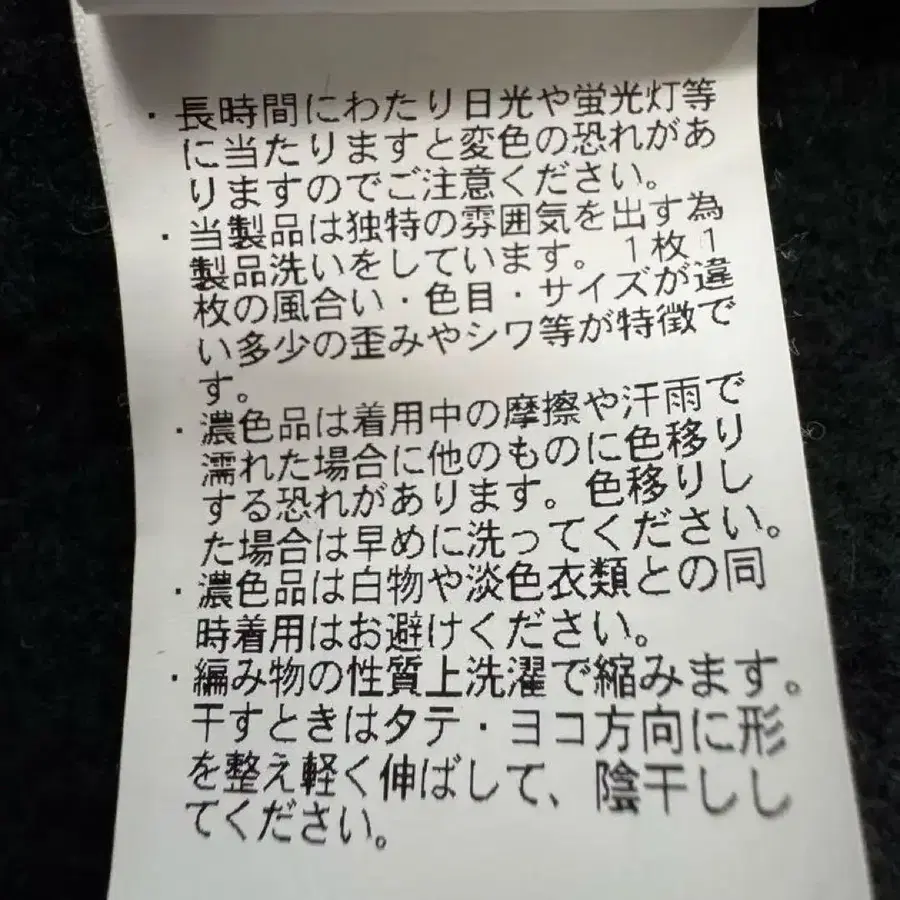 ・長時間にわたり日光や蛍光灯等
に当たりますと変色の恐れがあ
りますのでご注意ください。
・当製品は独特の雰囲気を出す為
製品洗いをしています。1枚1
枚の風合い・色目・サイズが違
い多少の歪みやシワ等が特徴で
す。
・濃色品は着用中の摩擦や汗雨で
濡れた場合に他のものに色移り
する恐れがあります。色移りし
た場合は早めに洗ってください。
・濃色品は白物や淡色衣類との同
時着用はお避けください。
・編み物の性質上洗濯で縮みます。
干すときはタテ・ヨコ方向に形
を整え軽く伸ばして、陰干しし
てください。